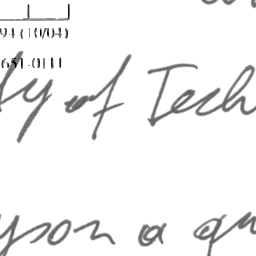 94 (10/04)
651-0111
ty of Tech
yson a qu